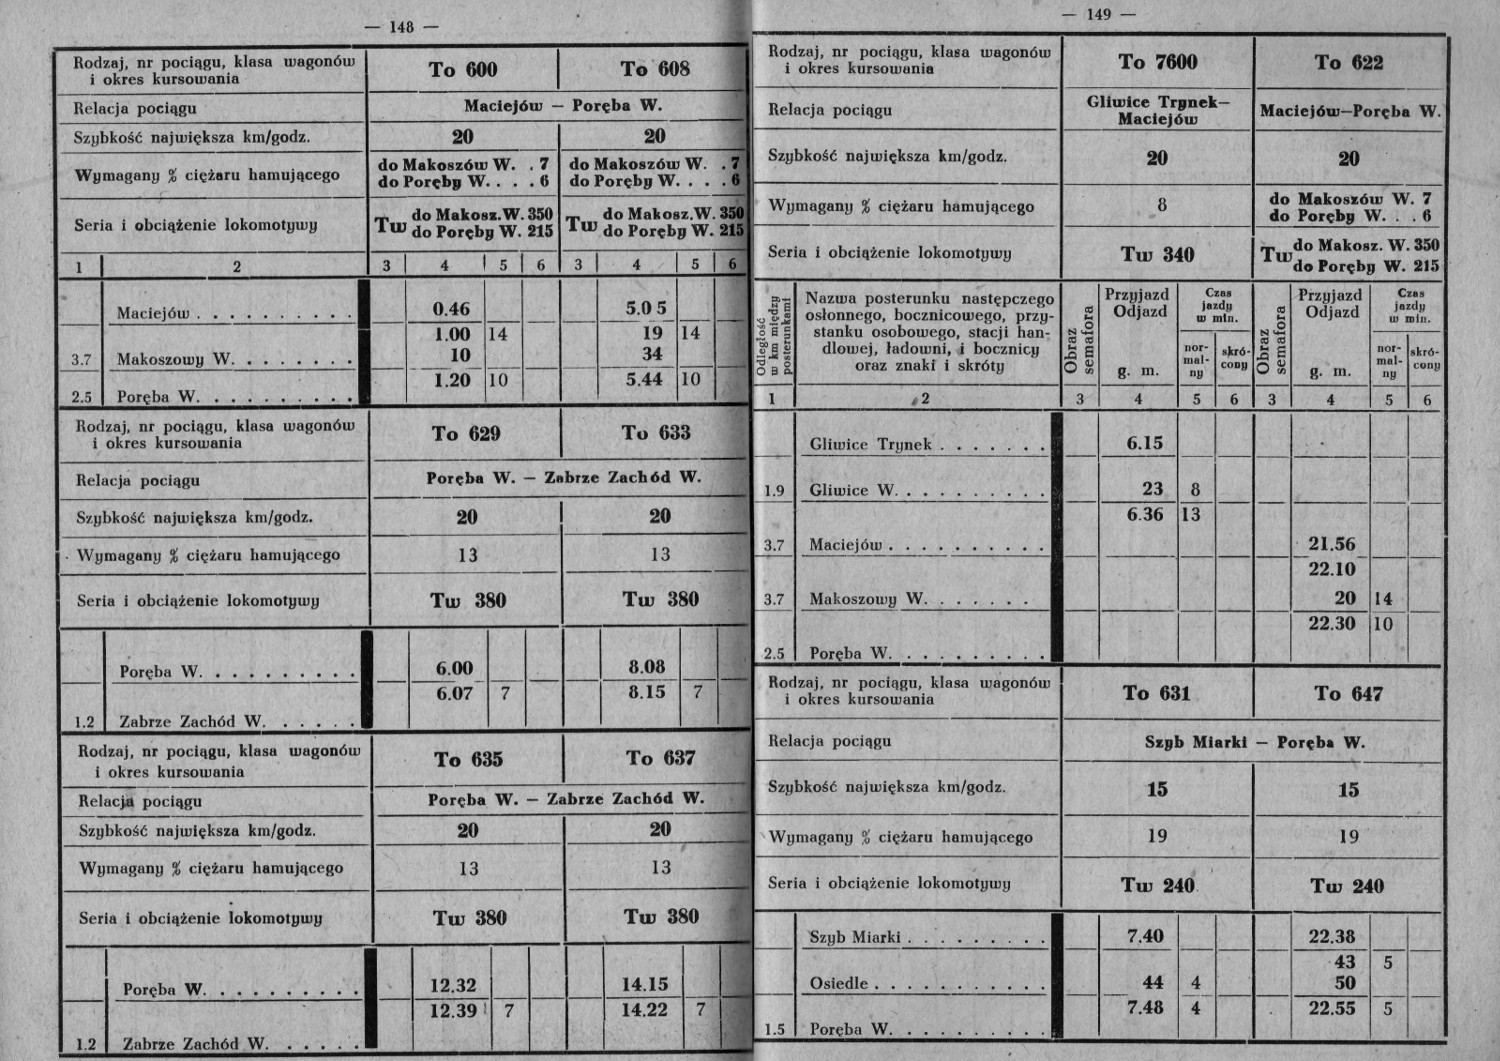 — 148 —
Rodzaj, nr pociągu, klasa wagonów
i okres kursowania
To 600 To 608
Relacja pociągu Maciejów — Poręba W.
Szybkość największa km/godz. 20 20
Wymagany % ciężaru hamującego
do Makoszów W. . 7 do Makoszów W. . 7
do Poręby W. . . . 6 do Poręby W. . . . 6
Seria i obciążenie lokomotywy
Tw do Makosz.W. 350 Tw do Makosz.W. 350
do Poręby W. 215 do Poręby W. 215
1 2 3 4 5 6 3 4 5 6
Maciejów . . . . . . . . . . 0.46 5.05
1.00 14 19 14
3.7 Makoszowy W. . . . . . . 10 34
1.20 10 5.44 10
2.5 Poręba W. . . . . . . . . .
Rodzaj, nr pociągu, klasa wagonów
i okres kursowania
To 629 To 633
Relacja pociągu Poręba W. — Zabrze Zachód W.
Szybkość największa km/godz. 20 20
Wymagany % ciężaru hamującego 13 13
Seria i obciążenie lokomotywy Tw 380 Tw 380
Poręba W. . . . . . . . . . 6.00 8.08
6.07 7 8.15 7
1.2 Zabrze Zachód W. . . . . .
Rodzaj, nr pociągu, klasa wagonów
i okres kursowania
To 635 To 637
Relacja pociągu Poręba W. — Zabrze Zachód W.
Szybkość największa km/godz. 20 20
Wymagany % ciężaru hamującego 13 13
Seria i obciążenie lokomotywy Tw 380 Tw 380
Poręba W. . . . . . . . . . 12.32 14.15
12.39 7 14.22 7
1.2 Zabrze Zachód W. . . . . .
— 149 —
Rodzaj, nr pociągu, klasa wagonów
i okres kursowania
To 7600 To 622
Relacja pociągu
Gliwice Trynek—
Maciejów
Maciejów—Poręba W.
Szybkość największa km/godz. 20 20
Wymagany % ciężaru hamującego 8
do Makoszów W. 7
do Poręby W. . . 6
Seria i obciążenie lokomotywy Tw 340
Tw do Makosz. W. 350
do Poręby W. 215
Odległość
w km między
posterunkami
Nazwa posterunku następczego
osłonnego, bocznicowego, przy-
stanku osobowego, stacji han-
dlowej, ładowni, i bocznicy
oraz znaki i skróty
Obraz
semafora
Przyjazd
Odjazd
g. m.
Czas
jazdy
w min.
nor-
mal-
ny
skró-
cony
Obraz
semafora
Przyjazd
Odjazd
g. m.
Czas
jazdy
w min.
nor-
mal-
ny
skró-
cony
1 2 3 4 5 6 3 4 5 6
Gliwice Trynek . . . . . . . 6.15
1.9 Gliwice W. . . . . . . . . . 23 8
6.36 13
3.7 Maciejów . . . . . . . . . . 21.56
22.10
3.7 Makoszowy W. . . . . . . 20 14
22.30 10
2.5 Poręba W. . . . . . . . . .
Rodzaj, nr pociągu, klasa wagonów
i okres kursowania
To 631 To 647
Relacja pociągu Szyb Miarki — Poręba W.
Szybkość największa km/godz. 15 15
Wymagany % ciężaru hamującego 19 19
Seria i obciążenie lokomotywy Tw 240 Tw 240
Szyb Miarki . . . . . . . . . 7.40 22.38
43 5
Osiedle . . . . . . . . . . . 44 4 50
7.48 4 22.55 5
1.5 Poręba W. . . . . . . . . .